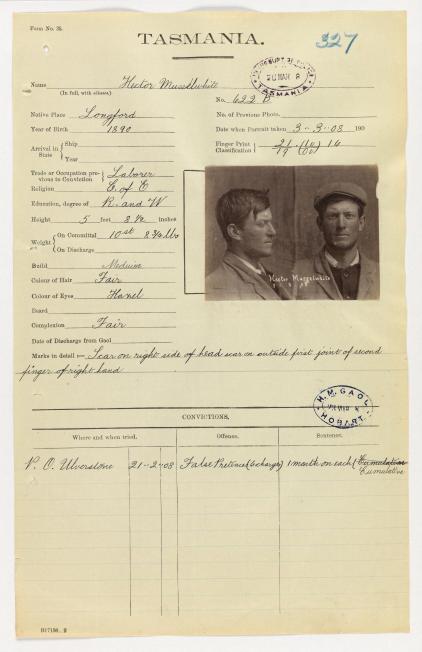 Form No. 35.
TASMANIA.
327
Name Hector Musselwhite
(In full, with aliases.)
20 MAR 8
TASMANIA
No. 622 B
Native Place Longford
No. of Previous Photo.
Year of Birth 1890
Date when Portrait taken 3-3-08 190
Arrival in State { Ship
Year
Finger Print Classification }
16
Trade or Occupation previous to Conviction } Laborer
Religion C. of E
Education, degree of R. and W
Height 5 feet 8½ inches
Weight { On Committal 10st 8¾ lbs
On Discharge
Build Medium
Colour of Hair Fair
Hector Musselwhite
Colour of Eyes Hazel
Beard
Complexion Fair
Date of Discharge from Gaol
Marks in detail :— Scar on right side of head scar on outside first joint of second
finger of right hand
H.M. GAOL
HOBART.
CONVICTIONS.
Where and when tried. Offence. Sentence.
P. O. Ulverstone 21-2-08 False Pretences (6 charges) 1 month on each (Cumulative
Cumulative